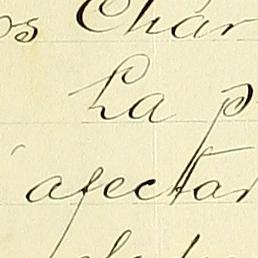 os Char
La p
afectar